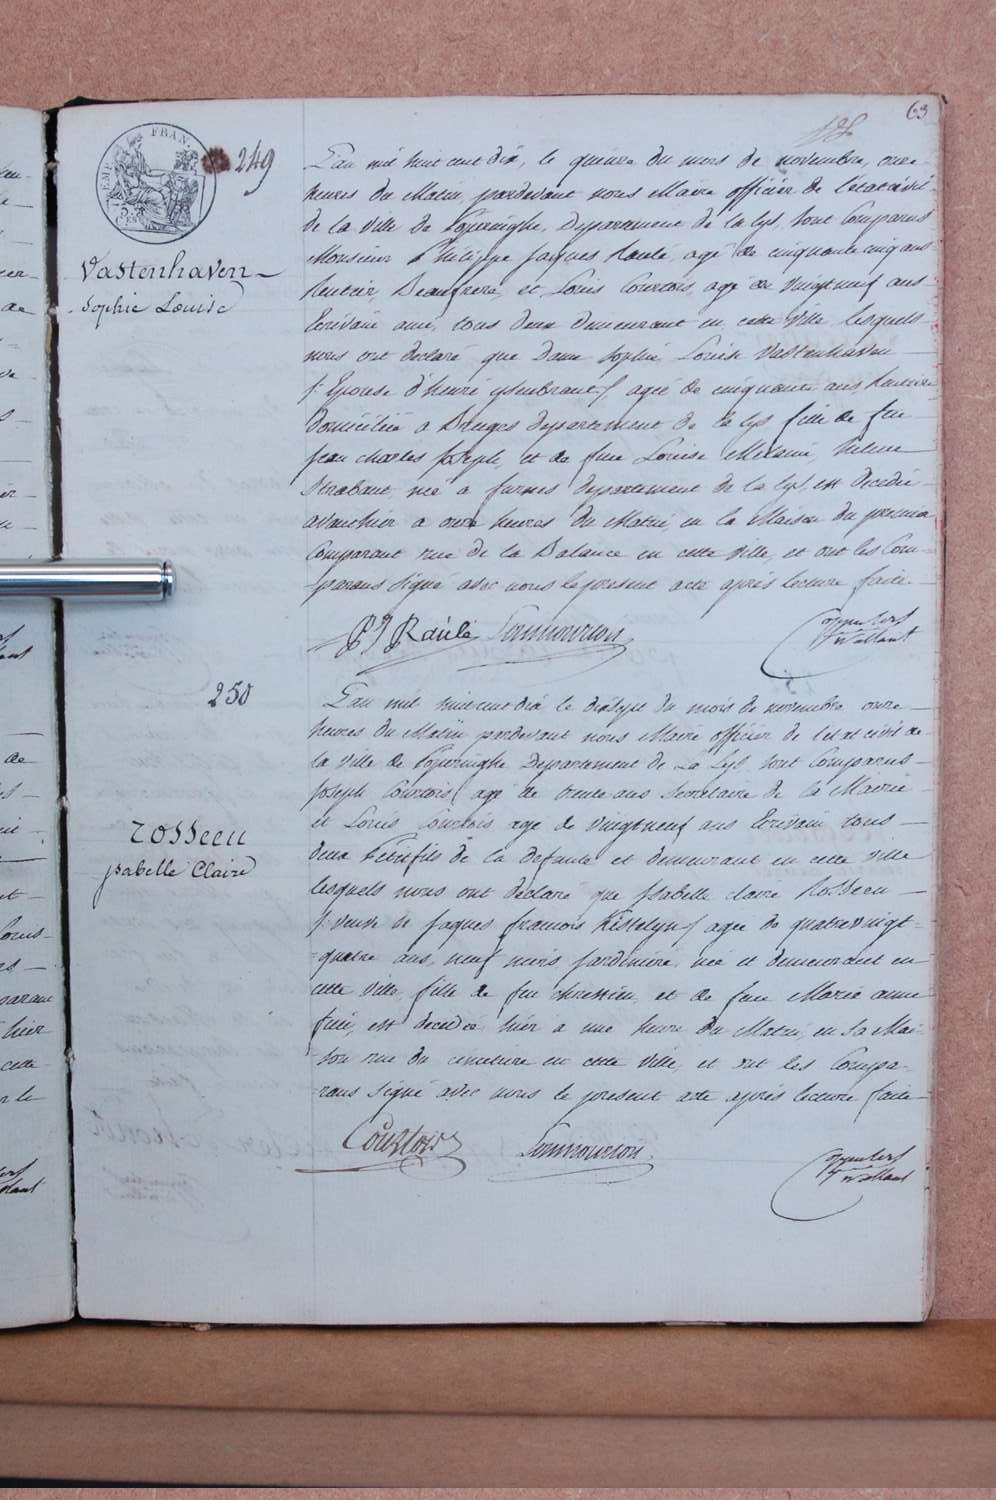 63
249
Vastenhaven
Sophie Louise
L'an mil huit cent dix, le quinze du mois de novembre, onze
heures du Matin pardevant nous Maire officier de l'état civil
de la ville de Poperinghe, Departement de la Lys, sont Comparus
Monsieur Philippe Jaques Raulé, agé de cinquante cinq ans
Rentier, Beaufrere, et Louis Courtois, agé de vingtneuf ans
Ecrivain ami, tous deux demeurant en cette ville lesquels
nous ont declaré que Dame Sophie Louise Vastenhaven
/: Epouse d'henri ysenbrant :/ agée de cinquante ans, Rentiere
Domiciliée a Bruges departement de la Lys fille de feu
Jean Charles Joseph, et de feue Louise Melanie, helene
Strabant, né a furnes departement de la Lys, est Decédée
avanthier a onze heures du Matin, en la Maison du premier
Comparant rue de la Balance en cette ville, et ont les Com-
parans signé avec nous le present acte après lecture faite
PJ Raulé
250
Rosseeu
Isabelle Claire
L'an mil huit cent dix le dixsept du mois de novembre onze
heures du Matin pardevant nous Maire officier de l'état civil de
la ville de Poperinghe Departement de La Lys, sont Comparus
Joseph Courtois, agé de trente ans Secretaire de la Mairie
et Louis Courtois age de vingtneuf ans Ecrivain tous
deux Petitfils de la defunte et demeurant en cette ville
lesquels nous ont declaré que Isabelle Claire Rosseeu
/: veuve de Jaques francois Kestelyn :/ agée de quatrevingt
quatre ans, neuf mois, Jardiniere, née et demeurant en
cette ville, fille de feu chretien, et de feue Marie anne
, est decedée hier a une heure du Matin, en sa Mai-
son rue du cimetiere en cette ville, et ont les Compa-
rans signé avec nous le present acte après lecture faite
Courtois